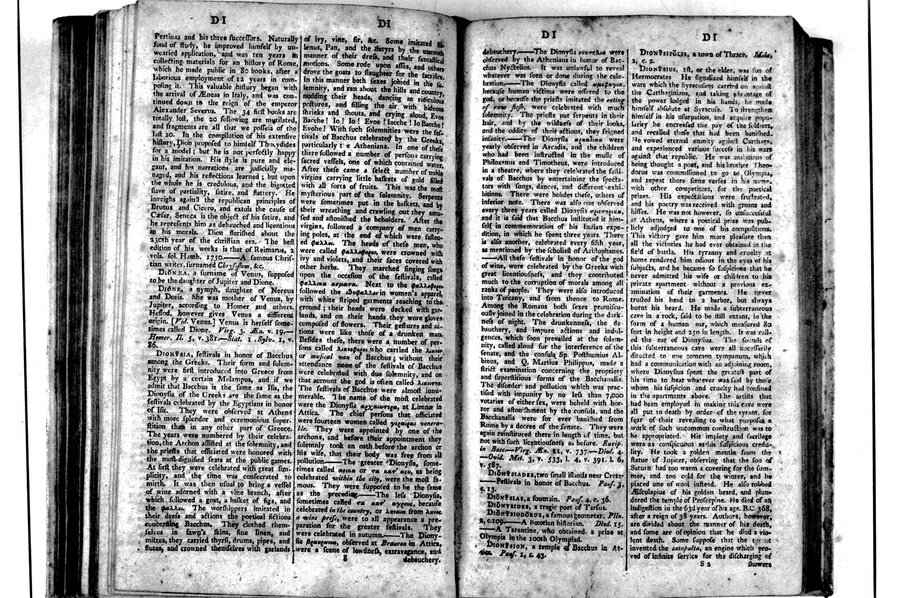 DI
Pertinax and his three successors. Naturally
fond of study, he improved himself by un-
wearied application, and was ten years in
collecting materials for an history of Rome,
which he made public in 80 books, after a
laborious employment of 12 years in com-
posing it. This valuable history began with
the arrival of Æneas in Italy, and was con-
tinued down to the reign of the emperor
Alexander Severus. The 34 first books are
totally lost, the 20 following are mutilated,
and fragments are all that we possess of the
last 20. In the compilation of his extensive
history, Dion proposed to himself Thucydides
for a model; but he is not perfectly happy
in his imitation. His style is pure and ele-
gant, and his narrations are judiciously ma-
naged, and his reflections learned; but upon
the whole he is credulous, and the bigotted
slave of partiality, satire, and flattery. He
inveighs against the republican principles of
Brutus and Cicero, and extols the cause of
Cæsar. Seneca is the object of his satire, and
he represents him as debauched and licentious
in his morals. Dion florished about the
230th year of the christian era. The best
edition of his works is that of Reimarus, 2
vols. fol. Hamb. 1750.—A famous Christ-
ian writer, surnamed Chrysostom, &c.
DIONÆA, a surname of Venus, supposed
to be the daughter of Jupiter and Dione.
DIŌNE, a nymph, daughter of Nereus
and Doris. She was mother of Venus, by
Jupiter, according to Homer and others.
Hesiod, however gives Venus a different
origin. [Vid. Venus.] Venus is herself some-
times called Dione. Virg. 3. Æn. v. 19.—
Homer. Il. 5, v. 381.—Stat. 1. Sylv. 1, v.
86.
DIONȲSIA, festivals in honor of Bacchus
among the Greeks. Their form and solem-
nity were first introduced into Greece from
Egypt by a certain Melampus, and if we
admit that Bacchus is the same as Isis, the
Dionysia of the Greeks are the same as the
festivals celebrated by the Egyptians in honor
of Isis. They were observed at Athens
with more splendor and ceremonious super-
stition than in any other part of Greece.
The years were numbered by their celebra-
tion, the Archon assisted at the solemnity, and
the priests that officiated were honored with
the most dignified seats at the public games.
At first they were celebrated with great sim-
plicity, and the time was consecrated to
mirth. It was then usual to bring a vessel
of wine adorned with a vine branch, after
which followed a goat, a basket of figs, and
the φαλλοι. The worshippers imitated in
their dress and actions the poetical fictions
concerning Bacchus. They clothed them-
selves in fawn's skins, fine linen, and
mitres, they carried thyrsi, drums, pipes, and
flutes, and crowned themselves with garlands
DI
of ivy, vine, fir, &c. Some imitated Si-
lenus, Pan, and the Satyrs by the uncouth
manner of their dress, and their fantastical
motions. Some rode upon asses, and others
drove the goats to slaughter for the sacrifice.
In this manner both sexes joined in the so-
lemnity, and ran about the hills and country,
nodding their heads, dancing in ridiculous
postures, and filling the air with hideous
shrieks and shouts, and crying aloud, Evoe
Bacche! Io! Io! Evoe! Iacche! Io Bacche!
Evohe! With such solemnities were the fes-
tivals of Bacchus celebrated by the Greeks,
particularly the Athenians. In one of these
there followed a number of persons carrying
sacred vessels, one of which contained water.
After these came a select number of noble
virgins carrying little baskets of gold filled
with all sorts of fruits. This was the most
mysterious part of the solemnity. Serpents
were sometimes put in the baskets, and by
their wreathing and crawling out they amu-
sed and astonished the beholders. After the
virgins, followed a company of men carry-
ing poles, at the end of which were fasten-
ed φαλλοι. The heads of these men, who
were called φαλλοφοροι, were crowned with
ivy and violets, and their faces covered with
other herbs. They marched singing songs
upon the occasion of the festivals, called
φαλλικα ασματα. Next to the φαλλοφοροι
followed the ιθυφαλλοι in women's apparel,
with white striped garments reaching to the
ground; their heads were decked with gar-
lands, and on their hands they wore gloves
composed of flowers. Their gestures and ac-
tions were like those of a drunken man.
Besides these, there were a number of per-
sons called λικνοφοροι who carried the λικνον
or musical van of Bacchus; without their
attendance none of the festivals of Bacchus
were celebrated with due solemnity, and on
that account the god is often called λικνιτης.
The festivals of Bacchus were almost innu-
merable. The name of the most celebrated
were the Dionysia αρχαιοτερα, at Limnæ in
Attica. The chief persons that officiated
were fourteen women called γεραιραι venera-
ble. They were appointed by one of the
archons, and before their appointment they
solemnly took an oath before the archon or
his wife, that their body was free from all
pollution.—The greater Dionysia, some-
times called αστικα or τα κατ' αστυ, as being
celebrated within the city, were the most fa-
mous. They were supposed to be the same
as the preceding.—The less Dionysia,
sometimes called τα κατ' αγρους, because
celebrated in the country, or ληναια from ληνος
a wine press, were to all appearance a pre-
paration for the greater festivals. They
were celebrated in autumn.—The Diony-
sia βραυρωνια, observed at Brauron in Attica,
were a scene of lewdness, extravagance, and
S
debauchery.
DI
debauchery.—The Dionysia νυκτηλια were
observed by the Athenians in honor of Bac-
chus Nyctelius. It was unlawful to reveal
whatever was seen or done during the cele-
bration.—The Dionysia called ωμοφαγια,
because human victims were offered to the
god, or because the priests imitated the eating
of raw flesh, were celebrated with much
solemnity. The priests put serpents in their
hair, and by the wildness of their looks,
and the oddity of their actions, they feigned
insanity.—The Dionysia αρκαδικα were
yearly observed in Arcadia, and the children
who had been instructed in the music of
Philoxenus and Timotheus, were introduced
in a theatre, where they celebrated the festi-
vals of Bacchus by entertaining the specta-
tors with songs, dances, and different exhi-
bitions. There were besides these, others of
inferior note. There was also one observed
every three years called Dionysia τριετηρικα,
and it is said that Bacchus instituted it him-
self in commemoration of his Indian expe-
dition, in which he spent three years. There
is also another, celebrated every fifth year,
as mentioned by the scholiast of Aristophanes.
—All these festivals in honor of the god
of wine, were celebrated by the Greeks with
great licentiousness, and they contributed
much to the corruption of morals among all
ranks of people. They were also introduced
into Tuscany, and from thence to Rome.
Among the Romans both sexes promiscu-
ously joined in the celebration during the dark-
ness of night. The drunkenness, the de-
bauchery, and impure actions and indul-
gences, which soon prevailed at the solem-
nity, called aloud for the interference of the
senate, and the consuls Sp. Posthumius Al-
binus, and Q. Martius Philippus, made a
strict examination concerning the propriety
and superstitious forms of the Bacchanalia.
The disorder and pollution which was prac-
tised with impunity by no less than 7,000
votaries of either sex, were beheld with hor-
ror and astonishment by the consuls, and the
Bacchanalia were for ever banished from
Rome by a decree of the senate. They were
again reinstituted there in length of time, but
not with such licentiousness as before. Eurip.
in Bacc.—Virg. Æn. 11, v. 737.—Diod. 4.
—Ovid. Met. 3, v. 533, l. 4, v. 391. l. 6,
v. 587.
DIONȲSIADES, two small islands near Crete.
—Festivals in honor of Bacchus. Paus. 3,
c. 13.
DIONȲSIAS, a fountain. Paus. 4, c. 36.
DIONȲSIDES, a tragic poet of Tarsus.
DIONȲSIODŌRUS, a famous geometer. Plin.
2, c. 109.—A Bœotian historian. Diod. 15.
—A Tarentine, who obtained a prize at
Olympia in the 100th Olympiad.
DIONȲSION, a temple of Bacchus in At-
tica. Paus. 1, c. 43.
DI
DIONYSIPŎLIS, a town of Thrace. Mela.
2, c. 2.
DIONȲSIUS, 1st, or the elder, was son of
Hermocrates. He signalized himself in the
wars which the Syracusans carried on against
the Carthaginians, and taking advantage of
the power lodged in his hands, he made
himself absolute at Syracuse. To strengthen
himself in his usurpation, and acquire popu-
larity he encreased the pay of the soldiers,
and recalled those that had been banished.
He vowed eternal enmity against Carthage,
and experienced various success in his wars
against that republic. He was ambitious of
being thought a poet, and his brother Theo-
dorus was commissioned to go to Olympia,
and repeat there some verses in his name,
with other competitors, for the poetical
prizes. His expectations were frustrated,
and his poetry was received with groans and
hisses. He was not however, so unsuccessful
at Athens, where a poetical prize was pub-
licly adjudged to one of his compositions.
This victory gave him more pleasure than
all the victories he had ever obtained in the
field of battle. His tyranny and cruelty at
home rendered him odious in the eyes of his
subjects, and he became so suspicious that he
never admitted his wife or children to his
private apartment without a previous ex-
amination of their garments. He never
trusted his head to a barber, but always
burnt his beard. He made a subterraneous
cave in a rock, said to be still extant, in the
form of a human ear, which measured 80
feet in height and 250 in length. It was call-
ed the ear of Dionysius. The sounds of
this subterraneous cave were all necessarily
directed to one common tympanum, which
had a communication with an adjoining room,
where Dionysius spent the greatest part of
his time to hear whatever was said by those
whom his suspicion and cruelty had confined
in the apartments above. The artists that
had been employed in making this cave were
all put to death by order of the tyrant, for
fear of their revealing to what purposes a
work of such uncommon construction was to
be appropriated. His impiety and sacrilege
were as conspicuous as his suspicious credu-
lity. He took a golden mantle from the
statue of Jupiter, observing that the son of
Saturn had too warm a covering for the sum-
mer, and too cold for the winter, and he
placed one of wool instead. He also robbed
Æsculapius of his golden beard, and plun-
dered the temple of Proserpine. He died of an
indigestion in the 63d year of his age, B.C. 368,
after a reign of 38 years. Authors, however,
are divided about the manner of his death,
and some are of opinion that he died a vio-
lent death. Some suppose that the tyrant
invented the catapulta, an engine which pro-
ved of infinite service for the discharging of
S 2
showers